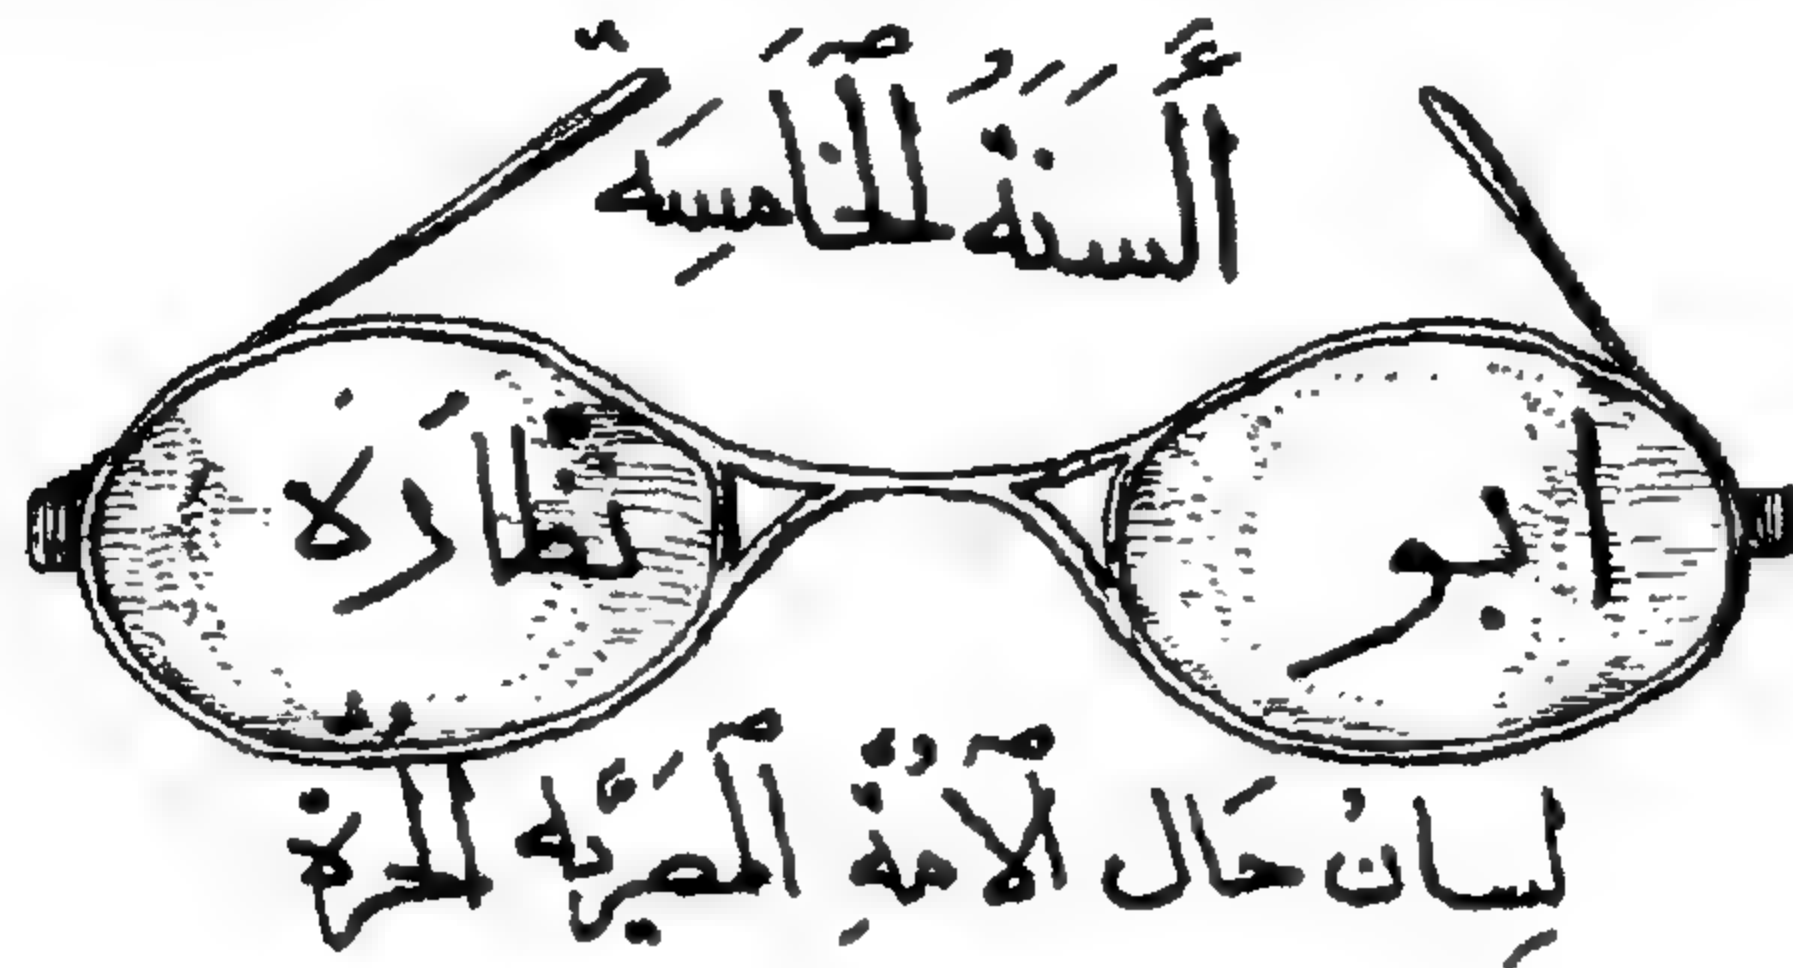 أَلسَنَةُ ٱلْخَامِسَةُ
ابو نَظَّارَة
لِسَانُ حَال ٱلْأُمَّةِ ٱلْمِصْرِيَّةِ الحُرَّة